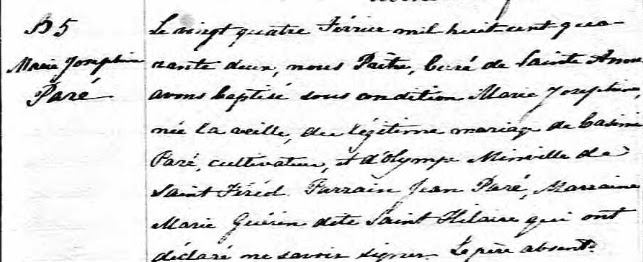 B 5
Marie Josephine
Paré
Le vingt quatre Février mil huit cent qua-
rante deux, nous Prêtre, Curé de Sainte Anne
avons baptisé sous condition Marie Josephine,
née la veille, du légitime mariage de Casimir
Paré, cultivateur, et d'Olympe Minville de
Saint Féréol. Parrain Jean Paré, Marraine
Marie Guérin dite Saint Hilaire qui ont
déclaré ne savoir signer. Le père absent.